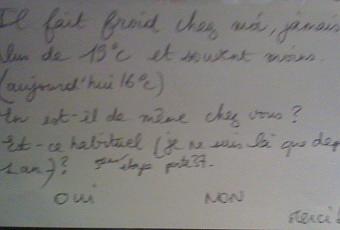 Il fait froid chez moi, jamais
plus de 19°C et souvent moins.
(aujourd'hui 16°C)
En est-il de même chez vous ?
Est-ce habituel (je ne suis là que dep
1 an) ? étage porte 37.
OUI NON
Merci